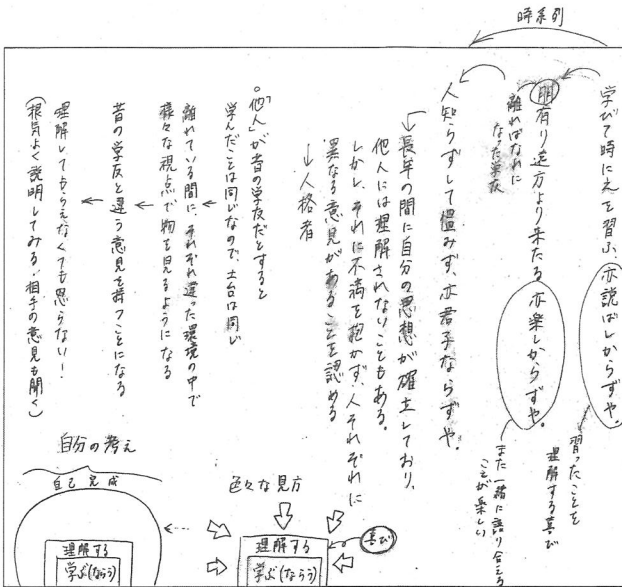 時系列
学びて時に之を習ふ、亦説ばしからずや。
習ったことを
理解する喜び
朋有り遠方より来たる 亦楽しからずや。
離ればなれに
なった学友
また一緒に語り合える
ことが楽しい
人知らずして慍みず、亦君子ならずや。
↓長年の間に自分の思想が確立しており、
他人には理解されないこともある。
しかし、それに不満を抱かず、人それぞれに
異なる意見があることを認める
↓人格者
。「他人」が昔の学友だとすると
学んだことは同じなので、土台は同じ
離れている間に、それぞれ違った環境の中で
様々な視点で物を見るようになる
昔の学友と違う意見を持つことになる
理解してもらえなくても怒らない!
(根気よく説明してみる・相手の意見も聞く)
自分の考え
自己完成
理解する
学ぶ(ならう)
色々な見方
喜び
理解する
学ぶ(ならう)